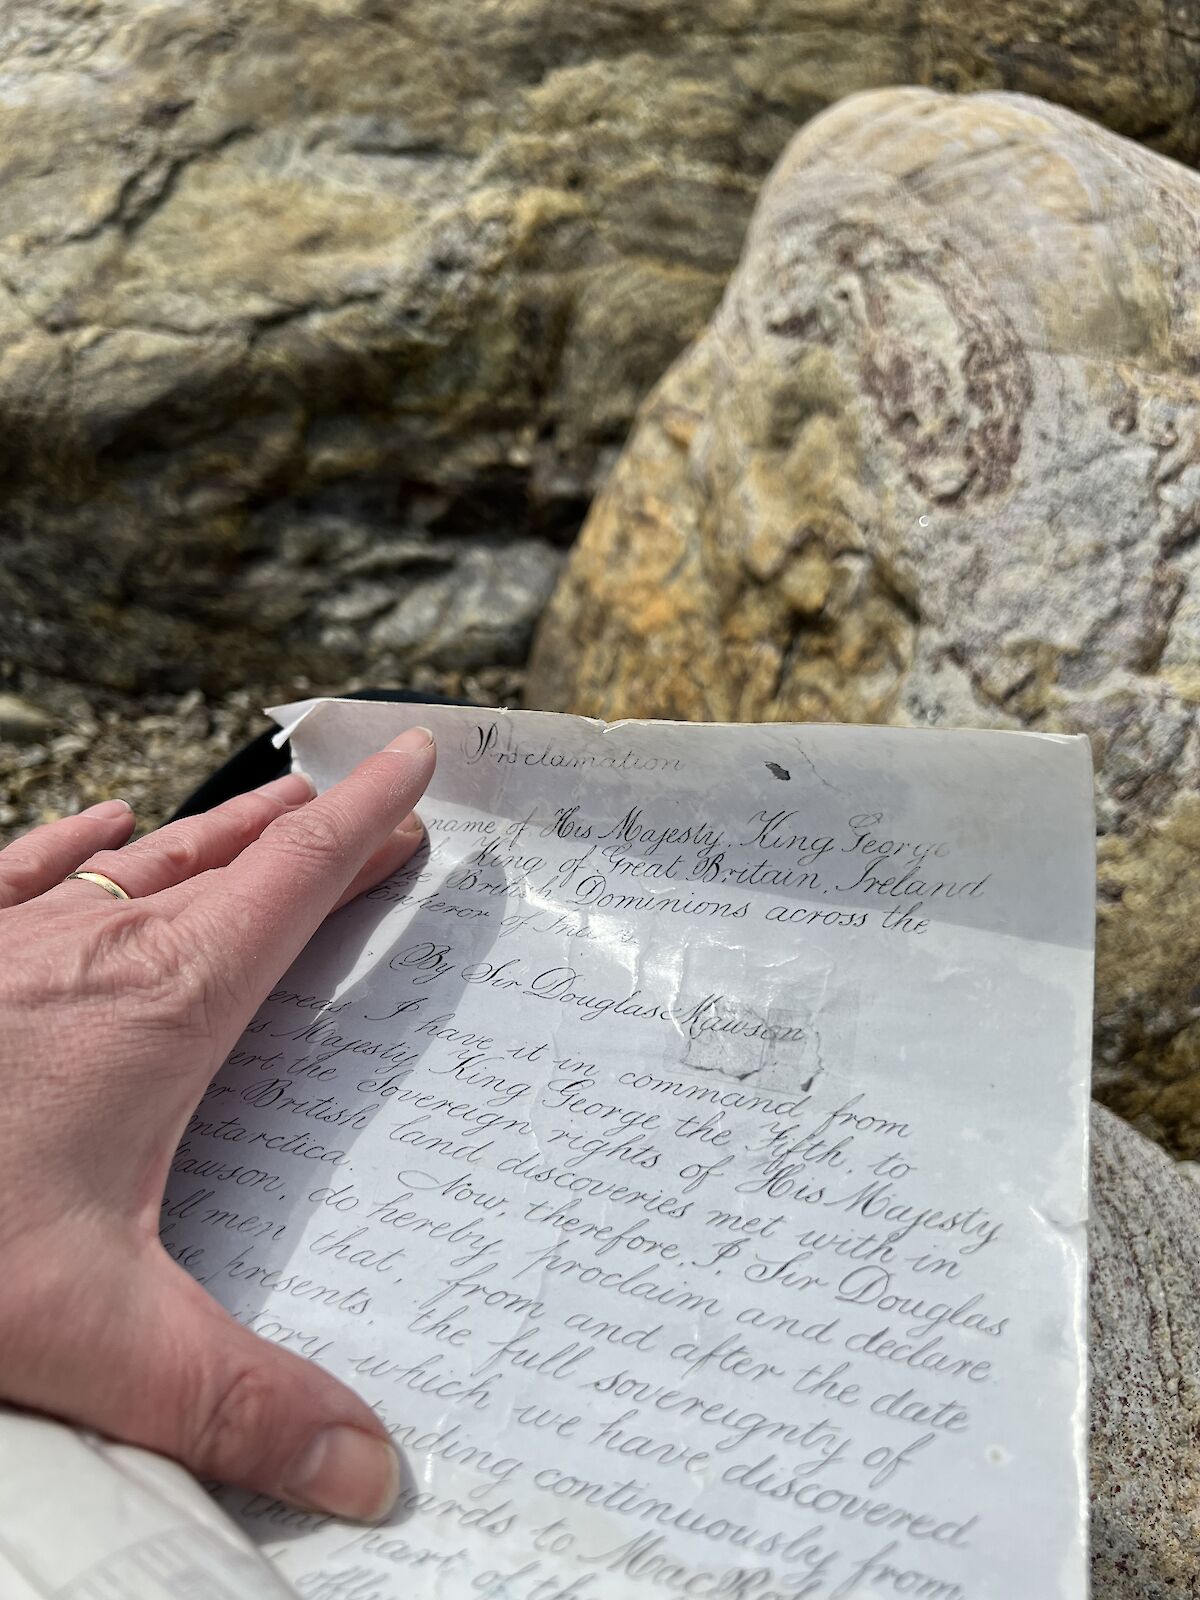 Proclamation
name of His Majesty, King George
King of Great Britain, Ireland
the British Dominions across the
Emperor of India.
By Sir Douglas Mawson
ereas I have it in command from
is Majesty King George the Fifth, to
ert the Sovereign rights of His Majesty
er British land discoveries met with in
Antarctica. Now, therefore, I Sir Douglas
Mawson, do hereby proclaim and declare
all men that, from and after the date
ese presents, the full sovereignty of
itory which we have discovered
tending continuously from
ards to MacRob
that part of the